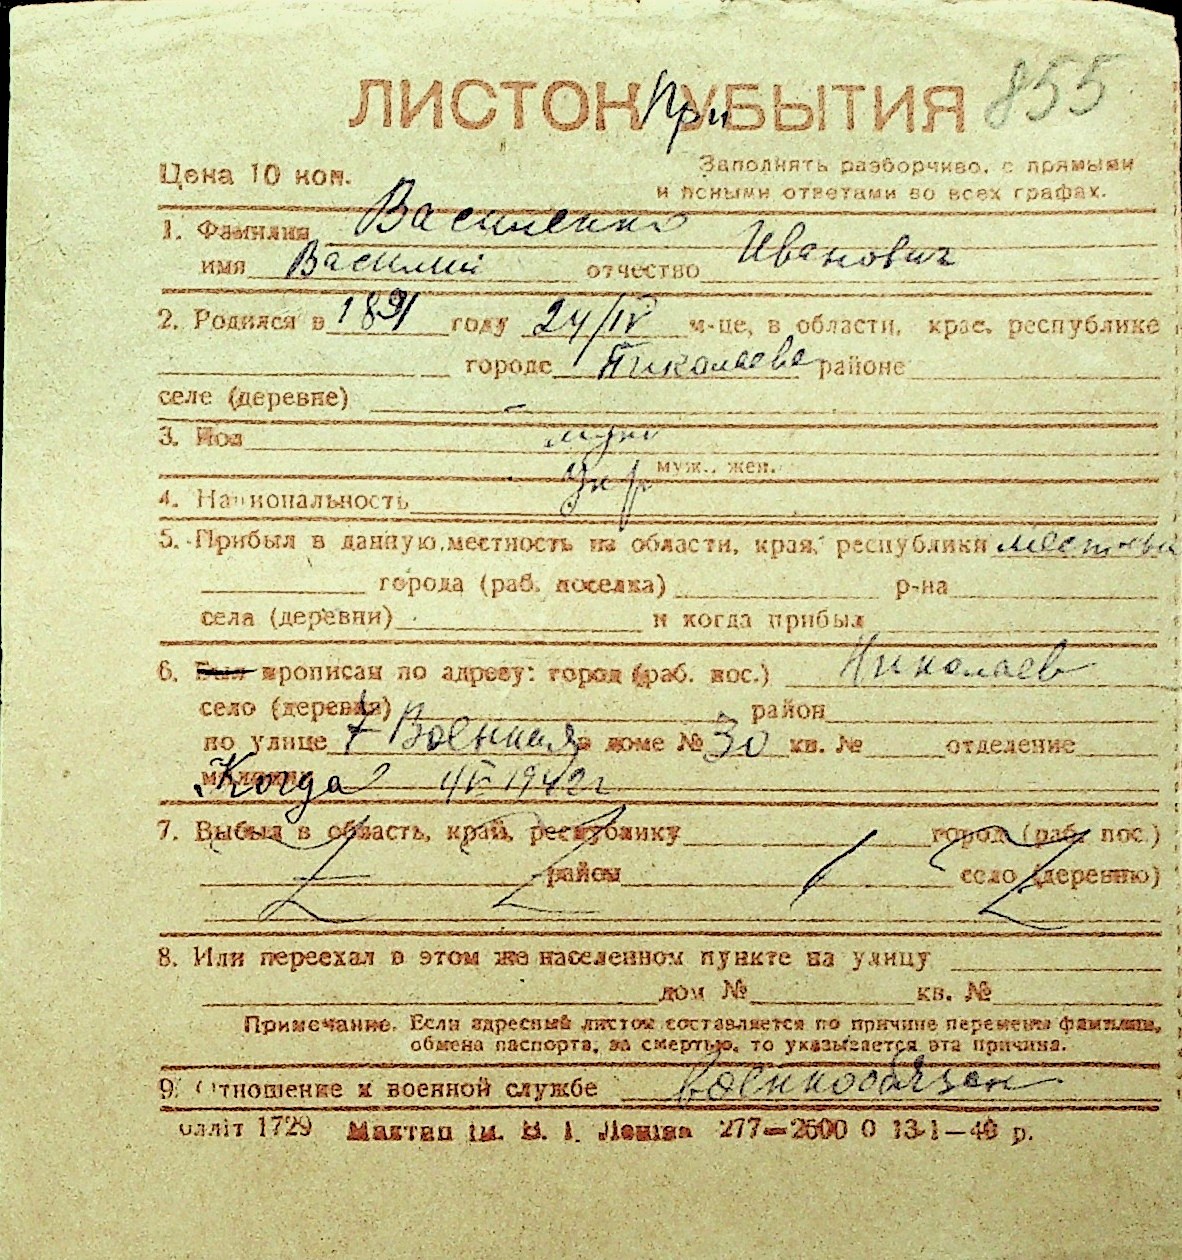 ЛИСТОК При УБЫТИЯ 855
Цена 10 коп.
Заполнять разборчиво, с прямыми
и ясными ответами во всех графах.
1. Фамилия Василенко
имя Василий отчество Иванович
2. Родился в 1891 году 24/IV м-це, в области, крае, республике
городе Николаеве районе
селе (деревне) –
3. Пол муж
муж., жен.
4. Национальность Укр
5. Прибыл в данную местность из области, края, республики местный
города (раб. поселка) р-на
села (деревни) и когда прибыл
6. Был прописан по адресу: город (раб. пос.) Николаев
село (деревня) район
по улице 7 Военная в доме № 30 кв. № отделение
милиции Когда 4/V 1942 г
7. Выбыл в область, край, республику город (раб. пос.)
район село (деревню)
8. Или переехал в этом же населенном пункте на улицу
дом № кв. №
Примечание. Если адресный листок составляется по причине перемены фамилии,
обмена паспорта, за смертью, то указывается эта причина.
9. Отношение к военной службе Военнообязан
олліт 1729 Мактип ім. В. І. Леніна 277—2600 0 13-1—40 р.